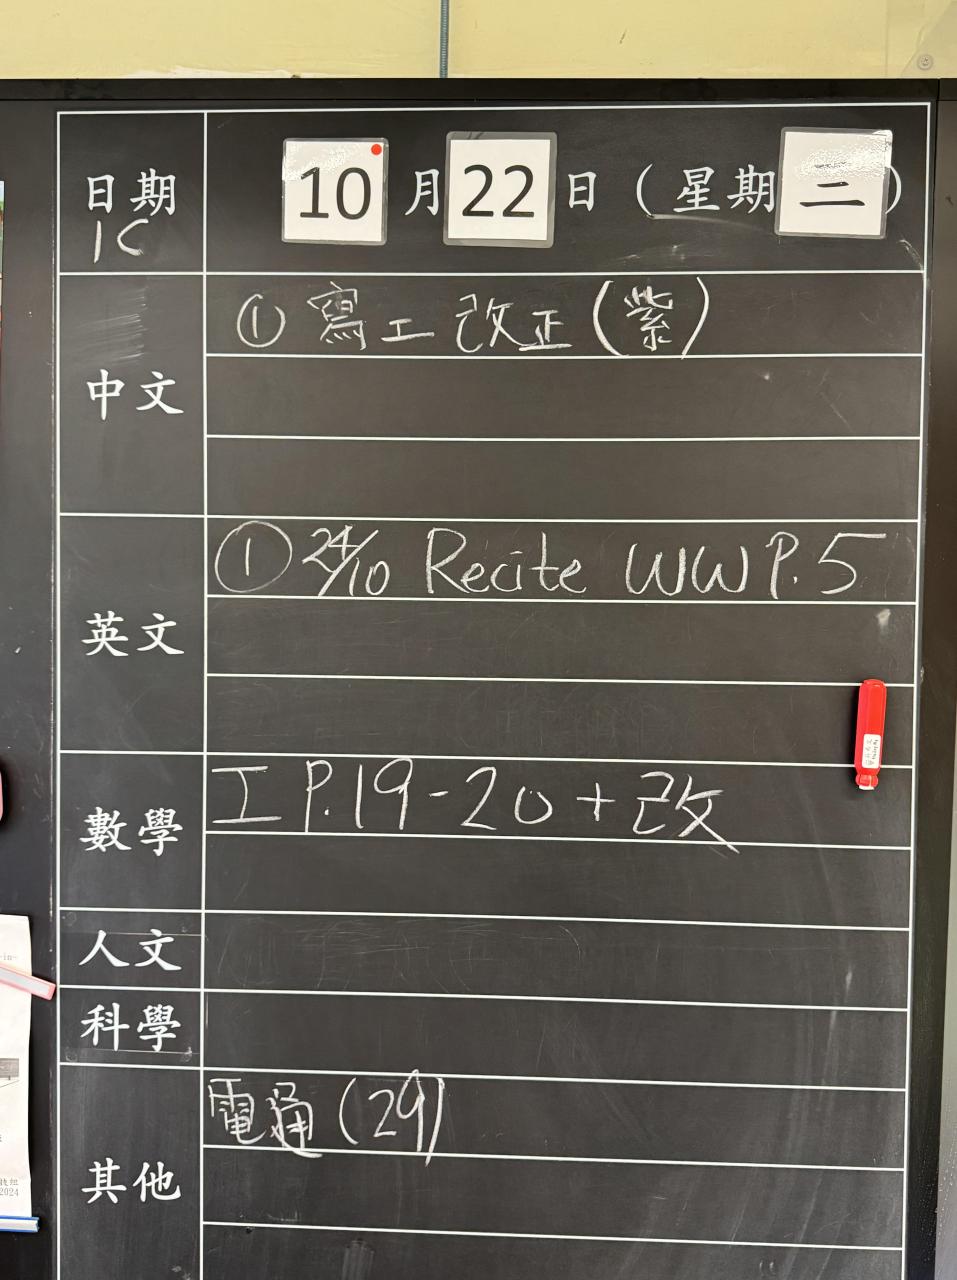 日期 10月22日（星期二）
1C
中文
① 寫工改正(紫)
英文
① 24/10 Recite WW P.5
數學
工 P.19-20+改
人文
科學
其他
電通(29)
2024